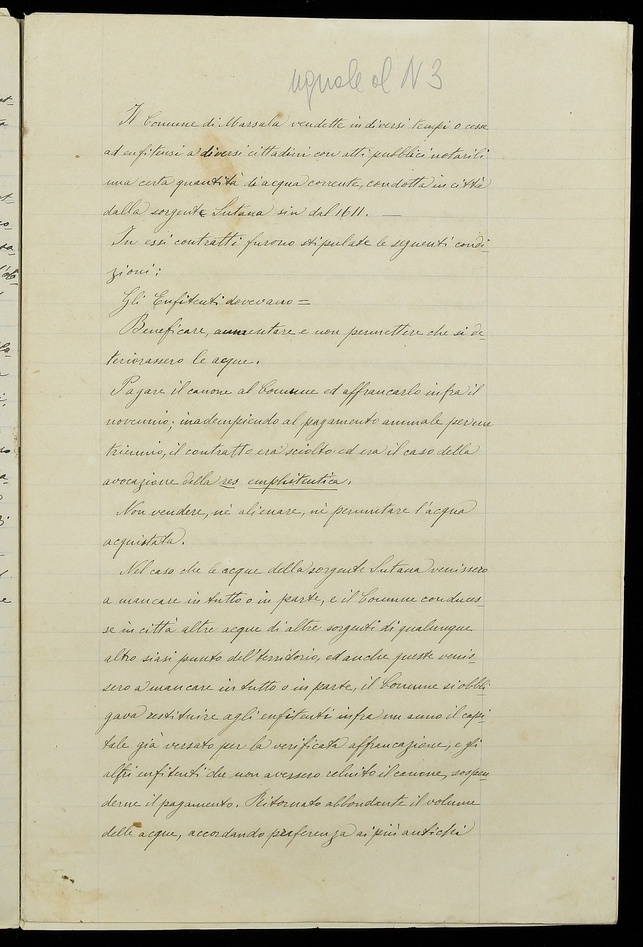 uguale al N 3
Il Comune di Marsala vendette in diversi tempi o cesse
ad enfiteusi a diversi cittadini con atti pubblici notarili
una certa quantità di acqua corrente, condotta in città
dalla sorgente Sutana sin dal 1611. —
In essi contratti furono stipulate le seguenti condi
zioni:
Gli Enfitenti dovevano =
Beneficare, aumentare e non permettere che si de-
teriorassero le acque.
Pagare il canone al Comune ed affrancarlo infra il
novennio; inadempiendo al pagamento annuale per un
triennio, il contratto era sciolto ed era il caso della
avocazione della res emphitentica.
Non vendere, nè alienare, nè permutare l'acqua
acquistata.
Nel caso che le acque della sorgente Sutana venissero
a mancare in tutto o in parte, e il Comune conduces-
se in città altre acque di altre sorgenti di qualunque
altro siasi punto del territorio, ed anche queste venis-
sero a mancare in tutto o in parte, il Comune si obbli
gava restituire agli enfitenti infra un anno il capi-
tale già versato per la verificata affrancazione, e gli
altri enfitenti che non avessero reluito il canone, sospen
derne il pagamento. Ritornato abbondente il volume
delle acque, accordando preferenza ai più antichi